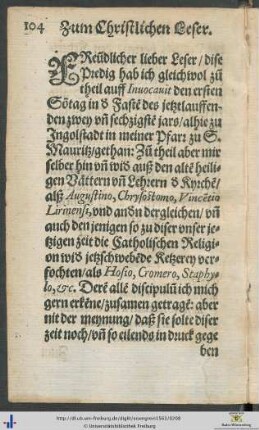 104 Zum Christlichen Leser.
FReüdlicher lieber Leser / dise
Predig hab ich gleichwol zů
theil auff Inuocauit den ersten
Sõtag in d Fastẽ des jetztlauffen-
den zwey vñ sechzigstẽ jars / alhie zu
Ingolstadt in meiner Pfarꝛ zu S.
Mauritz / gethan: Zů theil aber mir
selber hin vñ wid auß den altẽ heili-
gen Vättern vñ Lehrern d Kyrchẽ /
alß Augustino, Chrysostomo, Vincẽtio
Lirinensi, vnd andn dergleichen / vñ
auch den jenigen so zu diser vnser je-
tzigen zeit die Catholischen Religi-
on wid jetzschwebẽde Ketzerey ver-
fochten / als Hosio, Cromero, Staphy-
lo, &c. Derẽ allẽ discipulũ ich mich
gern erkẽne / zusamen getragẽ: aber
nit der meynung / daß sie solte diser
zeit noch / vñ so eilends in druck gege
ben
http://dl.ub.uni-freiburg.de/diglit/eisengrein1563/0208
© Universitätsbibliothek Freiburg
Baden-Württemberg